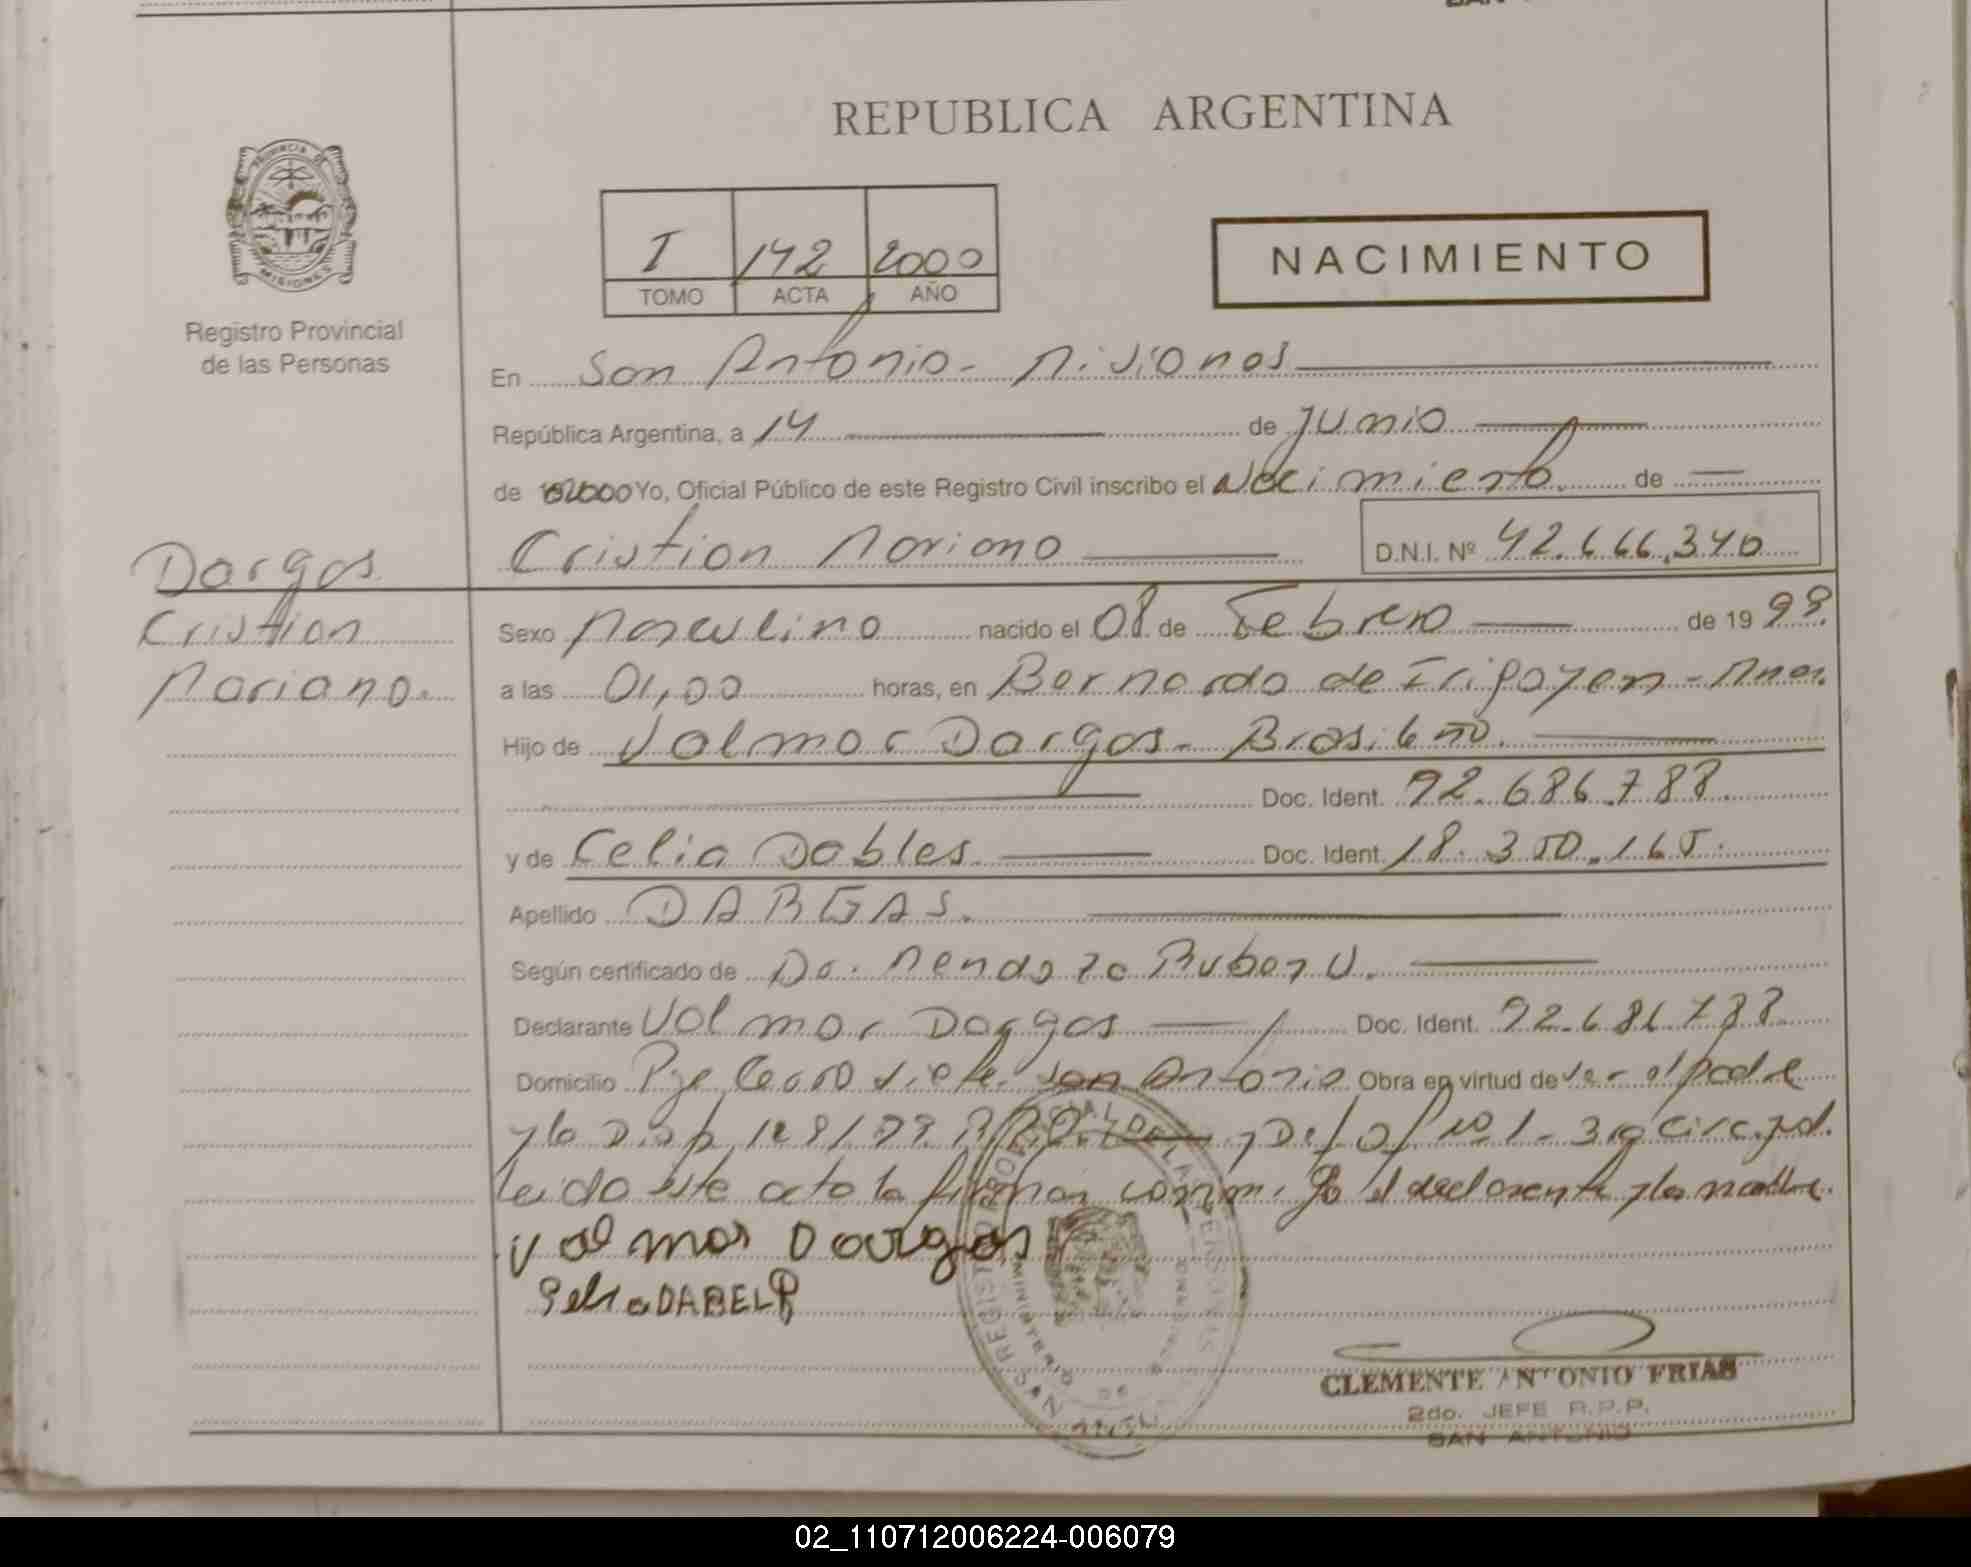 REPUBLICA ARGENTINA
PROVINCIA DE MISIONES
Registro Provincial
de las Personas
I 142 2000
TOMO ACTA AÑO
NACIMIENTO
En San Antonio - Misiones
República Argentina, a 14 de Junio
de 2000 Yo, Oficial Público de este Registro Civil inscribo el Nacimiento de
Cristian Mariano D.N.I. Nº 42.666.340
Dargas
Cristian
Mariano.
Sexo Masculino nacido el 08 de Febrero de 19 99.
a las 01,00 horas, en Bernardo de Irigoyen - Mnes.
Hijo de Valmor Dargas - Brasileño.
Doc. Ident. 92.686.788.
y de Celia Dables Doc. Ident. 18.350.165.
Apellido DARGAS.
Según certificado de Dr. Mendoza Ruben U.
Declarante Valmor Dargas Doc. Ident. 92.686.788
Domicilio Pje Cerro San Antonio Obra en virtud de ser el padre
y la Disp 128/99 R.P.P. y Def Of 3ra Circ. Jud.
leida este acta la firman conmigo el declarante y la madre.
Valmor Dargas
CLEMENTE ANTONIO FRIAS
2do. JEFE R.P.P.
SAN ANTONIO
02_110712006224-006079